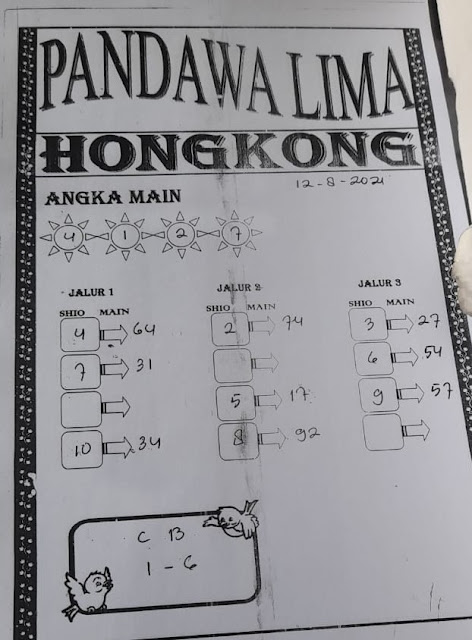 PANDAWA LIMA
HONGKONG
12-8-2021
ANGKA MAIN
4 1 2 7
JALUR 1
SHIO MAIN
4 64
7 31
10 34
JALUR 2
SHIO MAIN
2 74
5 17
8 92
JALUR 3
SHIO MAIN
3 27
6 54
9 57
C B
1 - 6